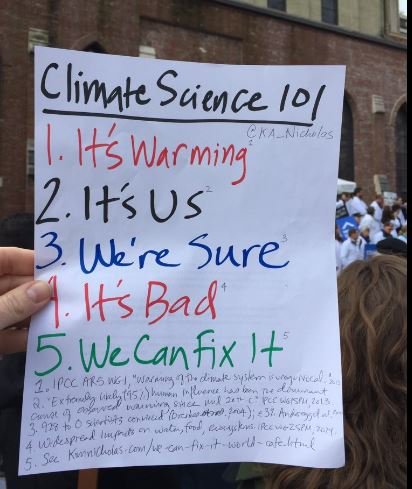 Climate Science 101
@KA_Nicholas
1. It's Warming 1
2. It's Us 2
3. We're Sure 3
4. It's Bad 4
5. We Can fix It 5
1. IPCC AR5 WG1, "Warming of the climate system is unequivocal." 2013
2. "Extremely likely (95%) human influence has been the dominant
cause of observed warming since mid 20th C" IPCC WG1SPM, 2013.
3. 928 to 0 scientists convinced (Oreskes 2004);
4. Widespread impacts on water, food, ecosystems. IPCC WG2SPM, 2014.
5. See Kimnicholas.com/we-can-fix-it-world-cafe.html